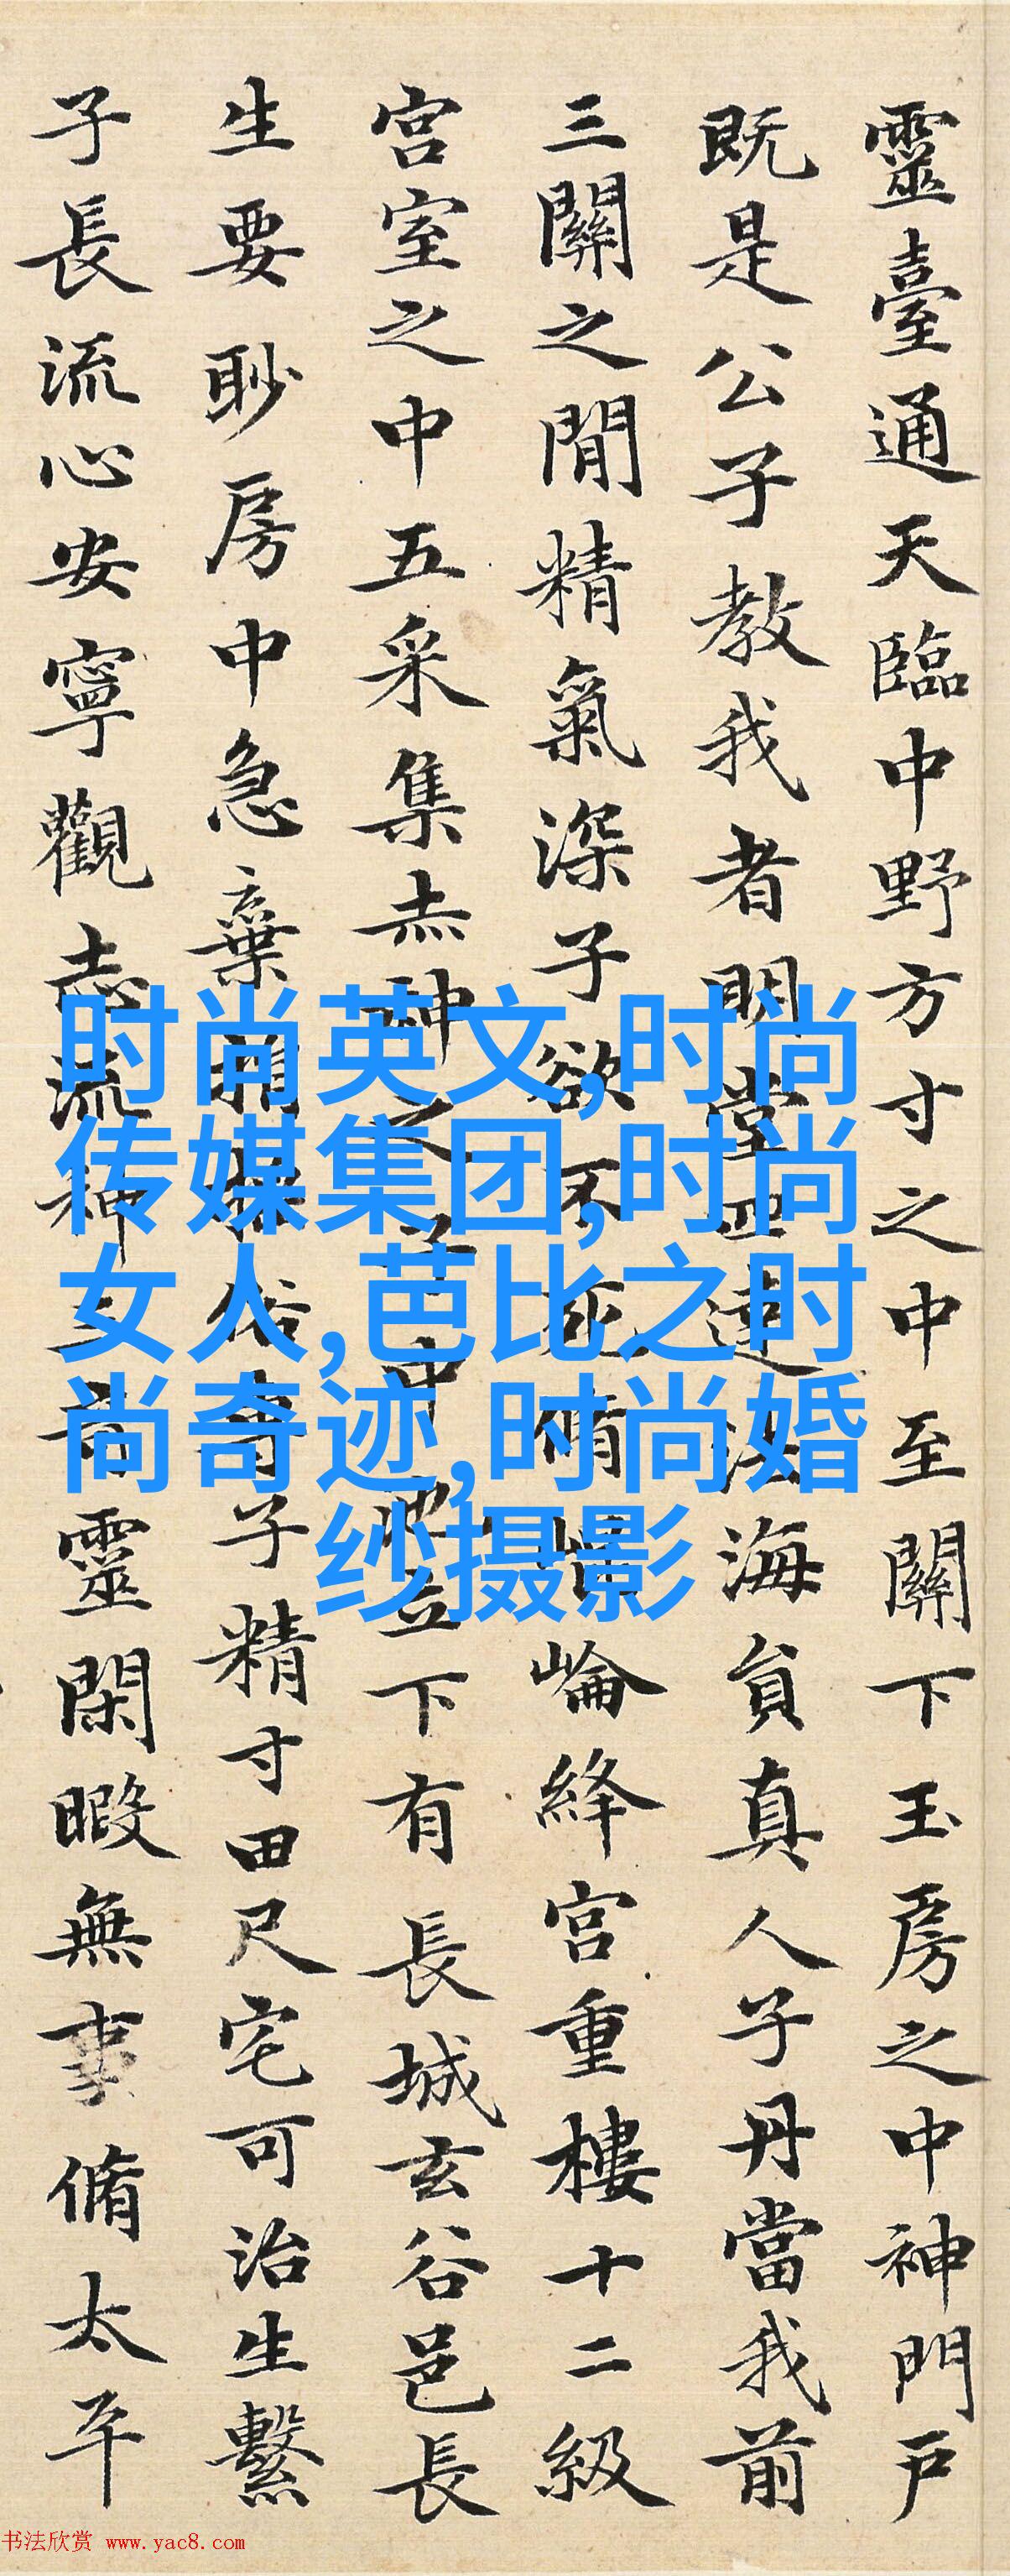 靈臺通天臨中野方寸之中至關下玉房之中神門戶
既是公子教我者明堂四達法海貟真人子丹當我前
三關之閒精氣深子欲不死脩崐崘絳宮重樓十二級
宮室之中五采集赤神之子中池立下有長城玄谷邑長
生要眇房中急棄捐淫俗專子精寸田尺宅可治生繫
子長流心安寧觀志流神三奇靈閑暇無事脩太平
时尚英文,时尚
传媒集团,时尚
女人,芭比之时
尚奇迹,时尚婚
纱摄影
书法欣赏 www.yac8.com